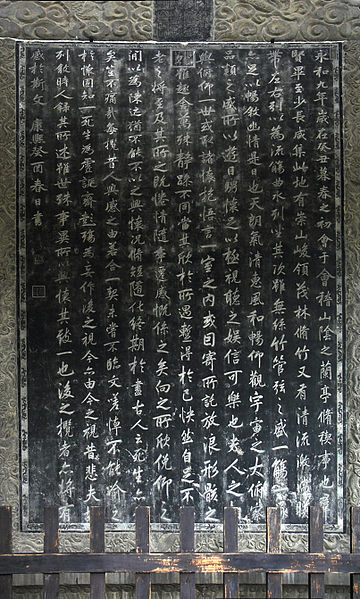 永和九年歲在癸丑暮春之初會于會稽山陰之蘭亭脩禊事也羣
賢畢至少長咸集此地有崇山峻領茂林脩竹又有清流激湍暎
帶左右引以為流觴曲水列坐其次雖無絲竹管弦之盛一觴一詠
亦足以暢敘幽情是日也天朗氣清惠風和暢仰觀宇宙之大俯察
品類之盛所以遊目騁懷足以極視聽之娛信可樂也夫人之相
與俯仰一世或取諸懷抱悟言一室之內或因寄所託放浪形骸之
外雖趣舍萬殊靜躁不同當其欣於所遇暫得於己快然自足不知
老之將至及其所之既惓情隨事遷感慨係之矣向之所欣俛仰之
間以為陳迹猶不能不以之興懷況脩短隨化終期於盡古人云死生亦大
矣豈不痛哉每攬昔人興感之由若合一契未嘗不臨文嗟悼不能喻之
於懷固知一死生為虛誕齊彭殤為妄作後之視今亦由今之視昔悲夫故
列敘時人錄其所述雖世殊事異所以興懷其致一也後之攬者亦將有
感於斯文 康熙癸酉春日書